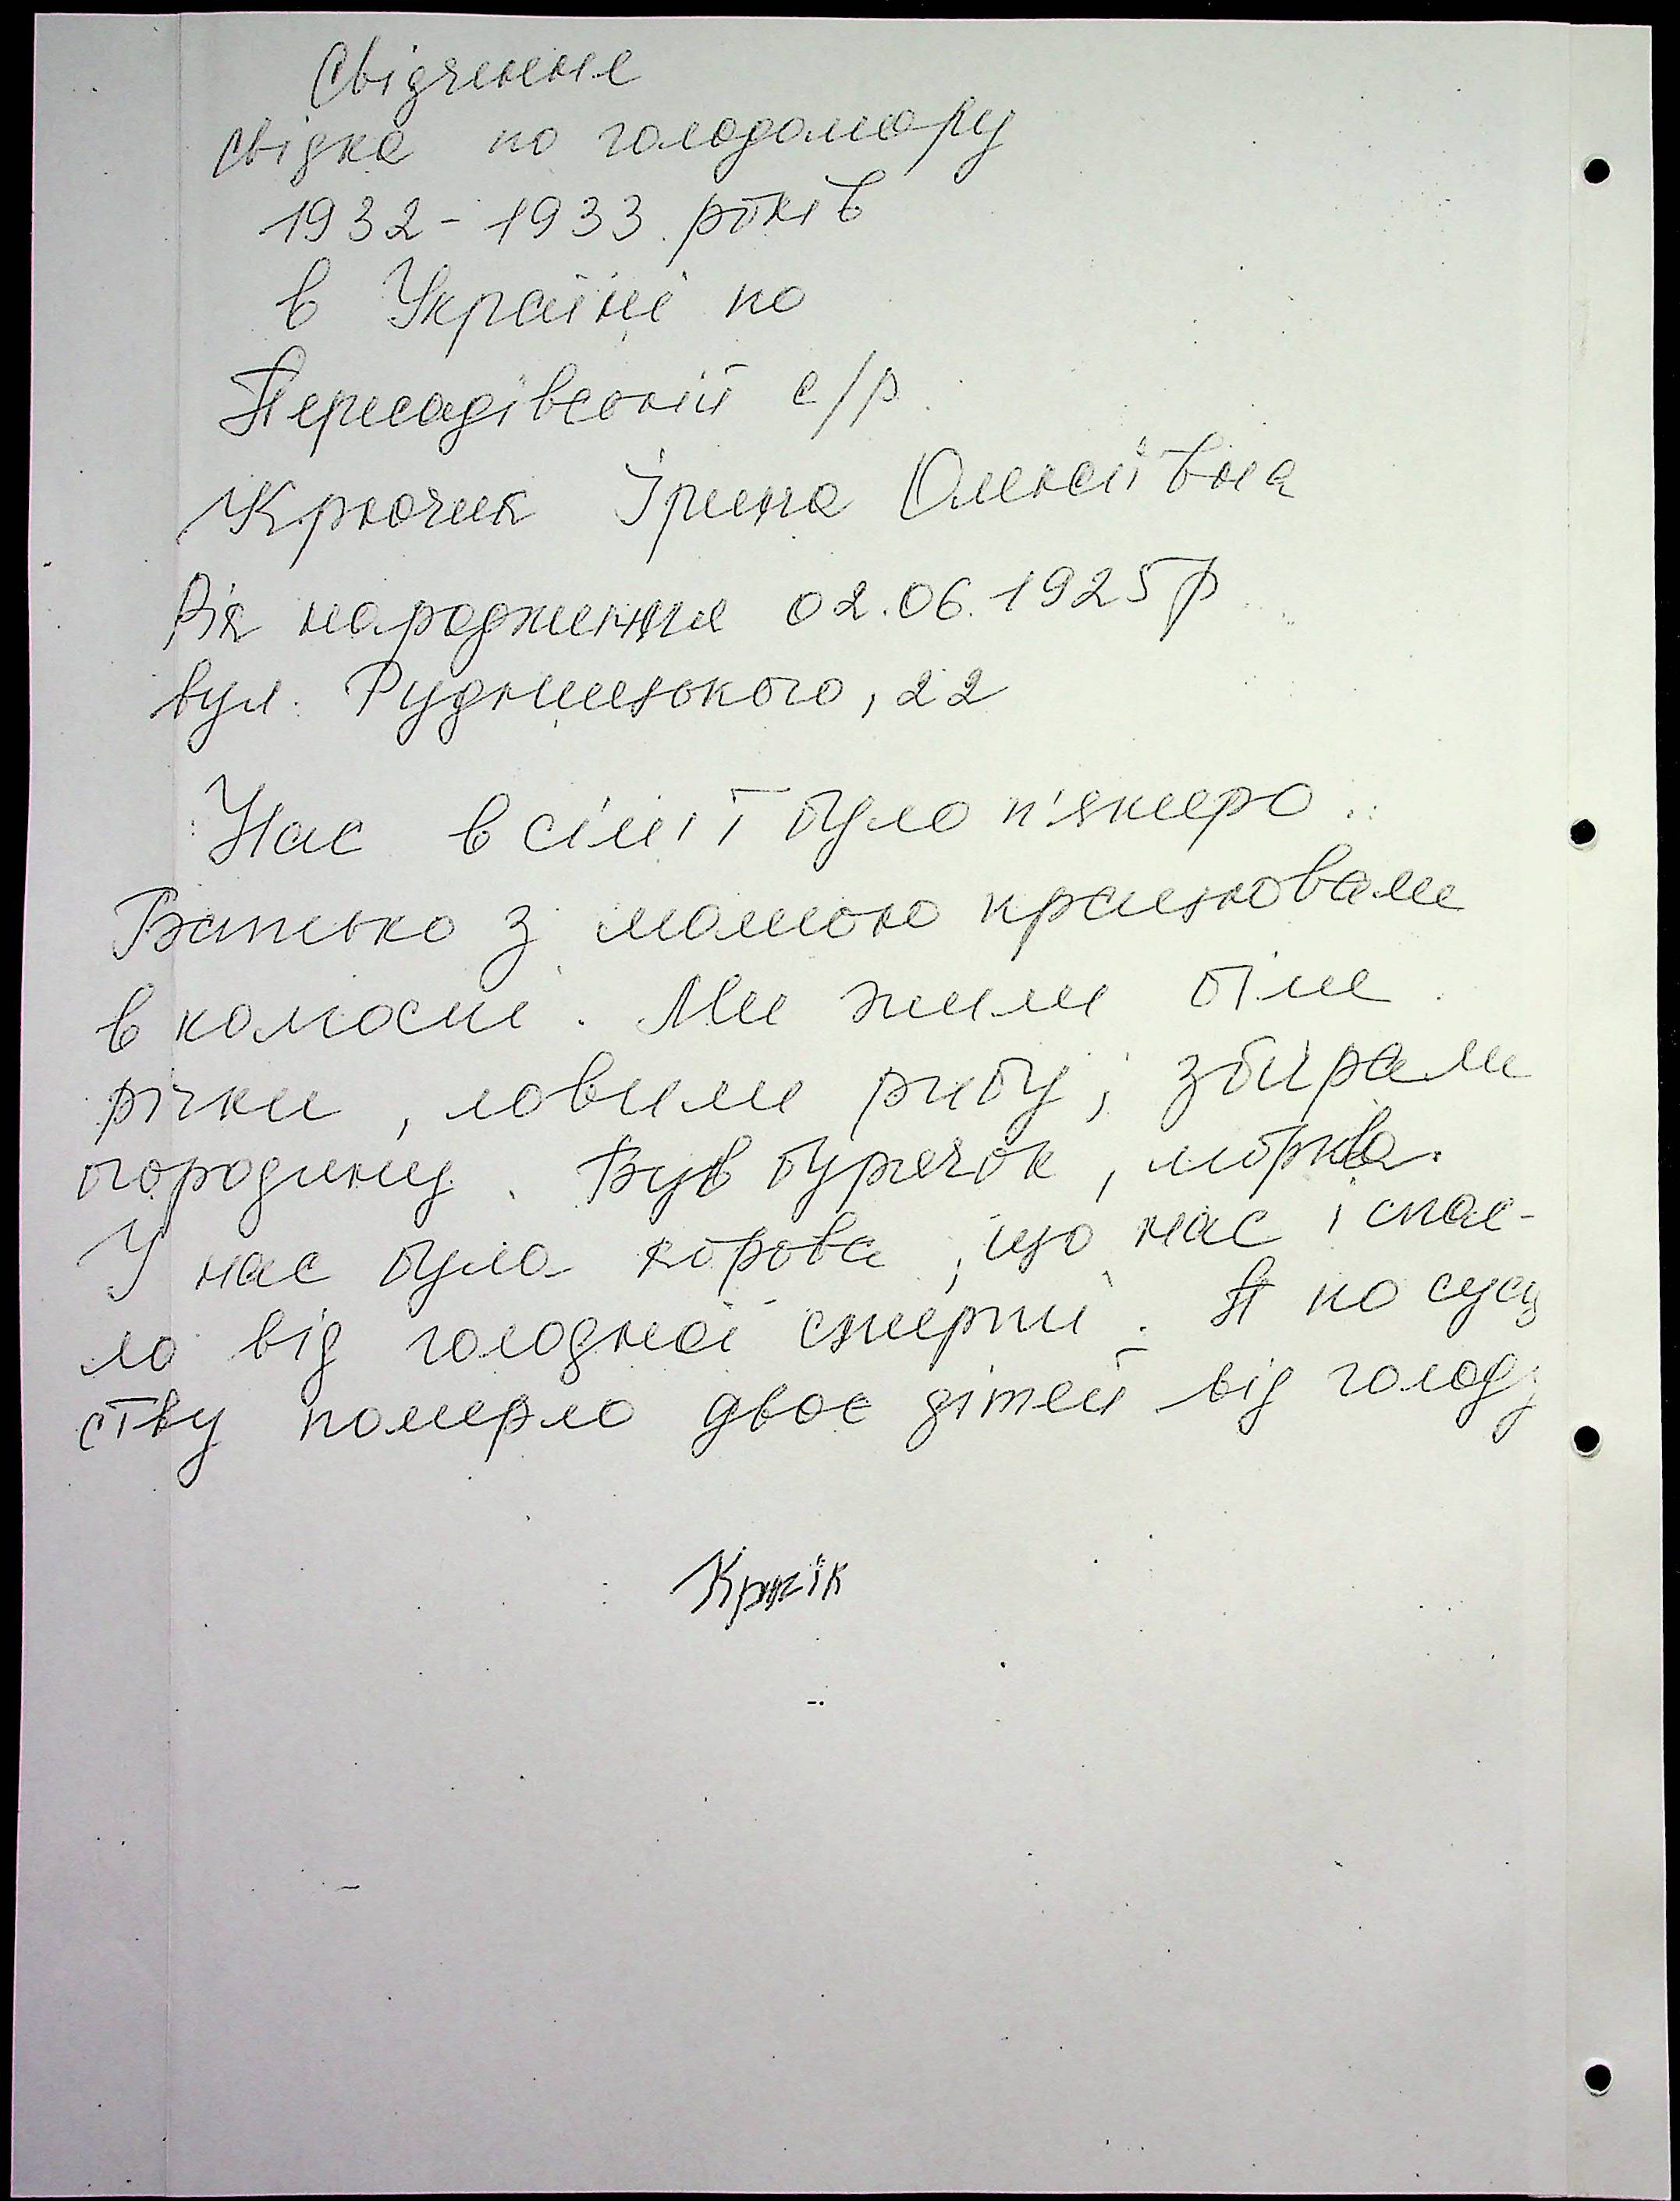 Свідчення
свідка по голодомору
1932-1933 років
в Україні по
Пересадівській с/р
Крючик Ірина Олексіївна
Рік народження 02.06.1925 р
вул. Рудницького, 22
Нас в сім'ї було п'ятеро.
Батько з мамою працювали
в колгоспі. Ми жили біля
річки, ловили рибу, збирали
городину. Був бурячок, морква.
У нас була корова, що нас і спас-
ло від голодної смерті. А по сусід
ству померло двоє дітей від голоду